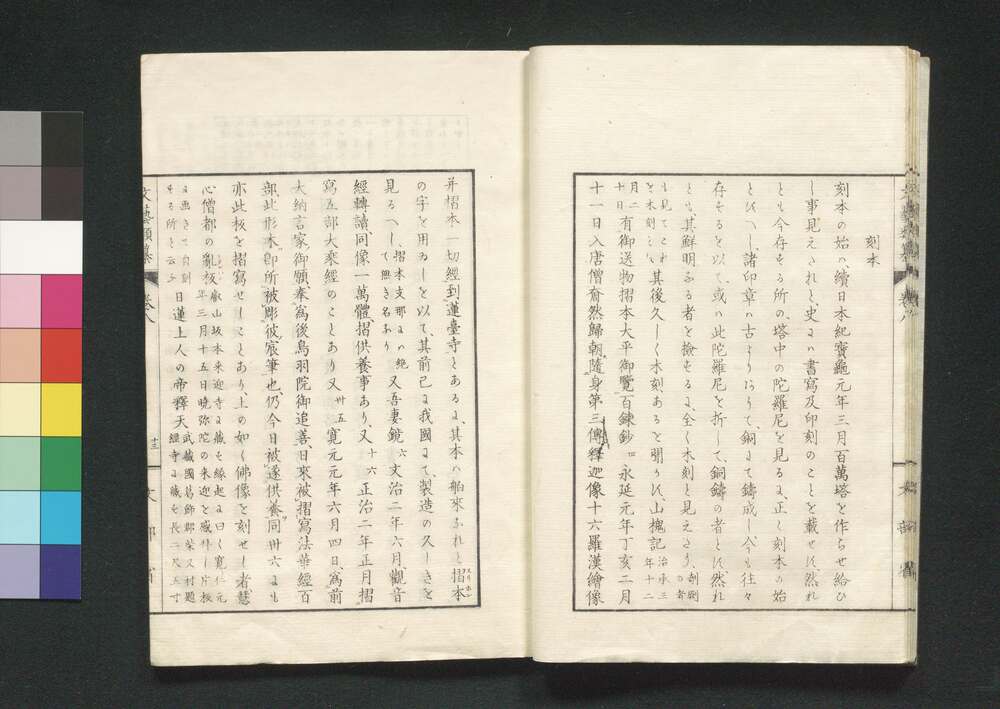 刻本
刻本の始ハ續日本紀寶龜元年三月百萬塔を作らせ給ひ
し事見えされと、史にハ書寫及印刻のことを載せす、然れ
とも今存する所の、塔中の陀羅尼を見るに、正しく刻本の始
といへし、諸印章の古よりありて、銅にて鑄成し、今も往々
存するを以て、或ハ此陀羅尼を折して、銅鑄の者とす、然れ
とも其鮮明なる者を撿するに、全く木刻と見えたり、
其後久しく木刻あるを聞かす、山槐記治承三年十二
月二日有御送物摺本大平御覽百錬鈔四永延元年丁亥二月
十一日入唐僧奝然歸朝隨身第三傳釋迦像十六羅漢繪像
并摺本一切經到蓮臺寺とあるに、其本ハ舶來なれと摺本
の字を用ゐしを以て、其前已に我國にて、製造の久しきを
見るへし、摺本支那にハ絶て無き名なり又吾妻鏡六文治二年六月觀音
經轉讀、同像一萬體、摺供養事あり、又十六正治二年正月摺
寫五部大乘經のことあり又卅五寛元元年六月四日、爲前
大納言家御願、奉爲後鳥羽院御追善、日來被摺寫法華經百
部、此形木即所被彫彼宸筆也、仍今日被遂供養同卅六にも
亦此板を摺寫せしことあり、上の如く佛像を刻せし者、慧
心僧都の亂板
嶽山坂本來迎寺に藏む縁起に曰く寛仁元
年三月十五日曉弥陀の來迎を感得し片板
に畫きて自刻
する所と云ふ
日蓮上人の帝釋天
武藏國葛飾郡柴又村題
經寺に藏む長二尺五寸
文藝類纂
卷八
十三
文部省